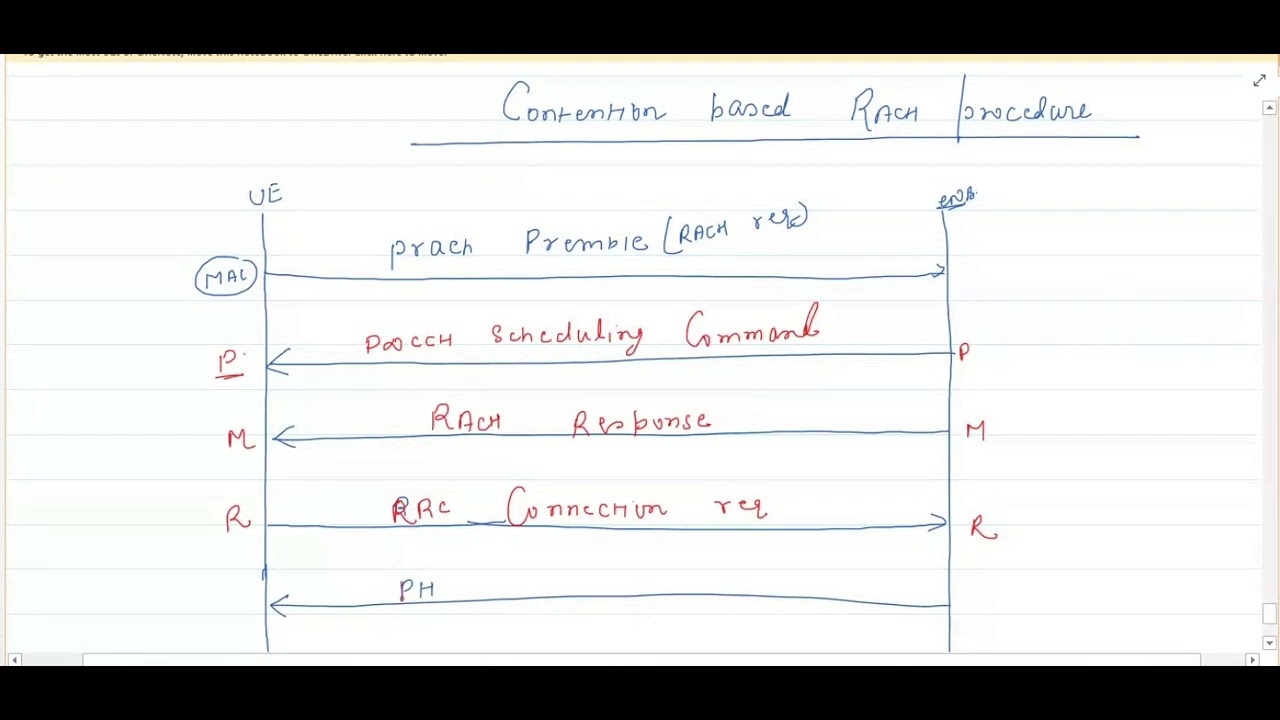 Contention based RACH procedure
UE
eNB.
prach Premble (RACH req)
MAC
PDCCH Scheduling Command
P.
P
RACH Response
M
M
RRC Connection req
R
R
PH